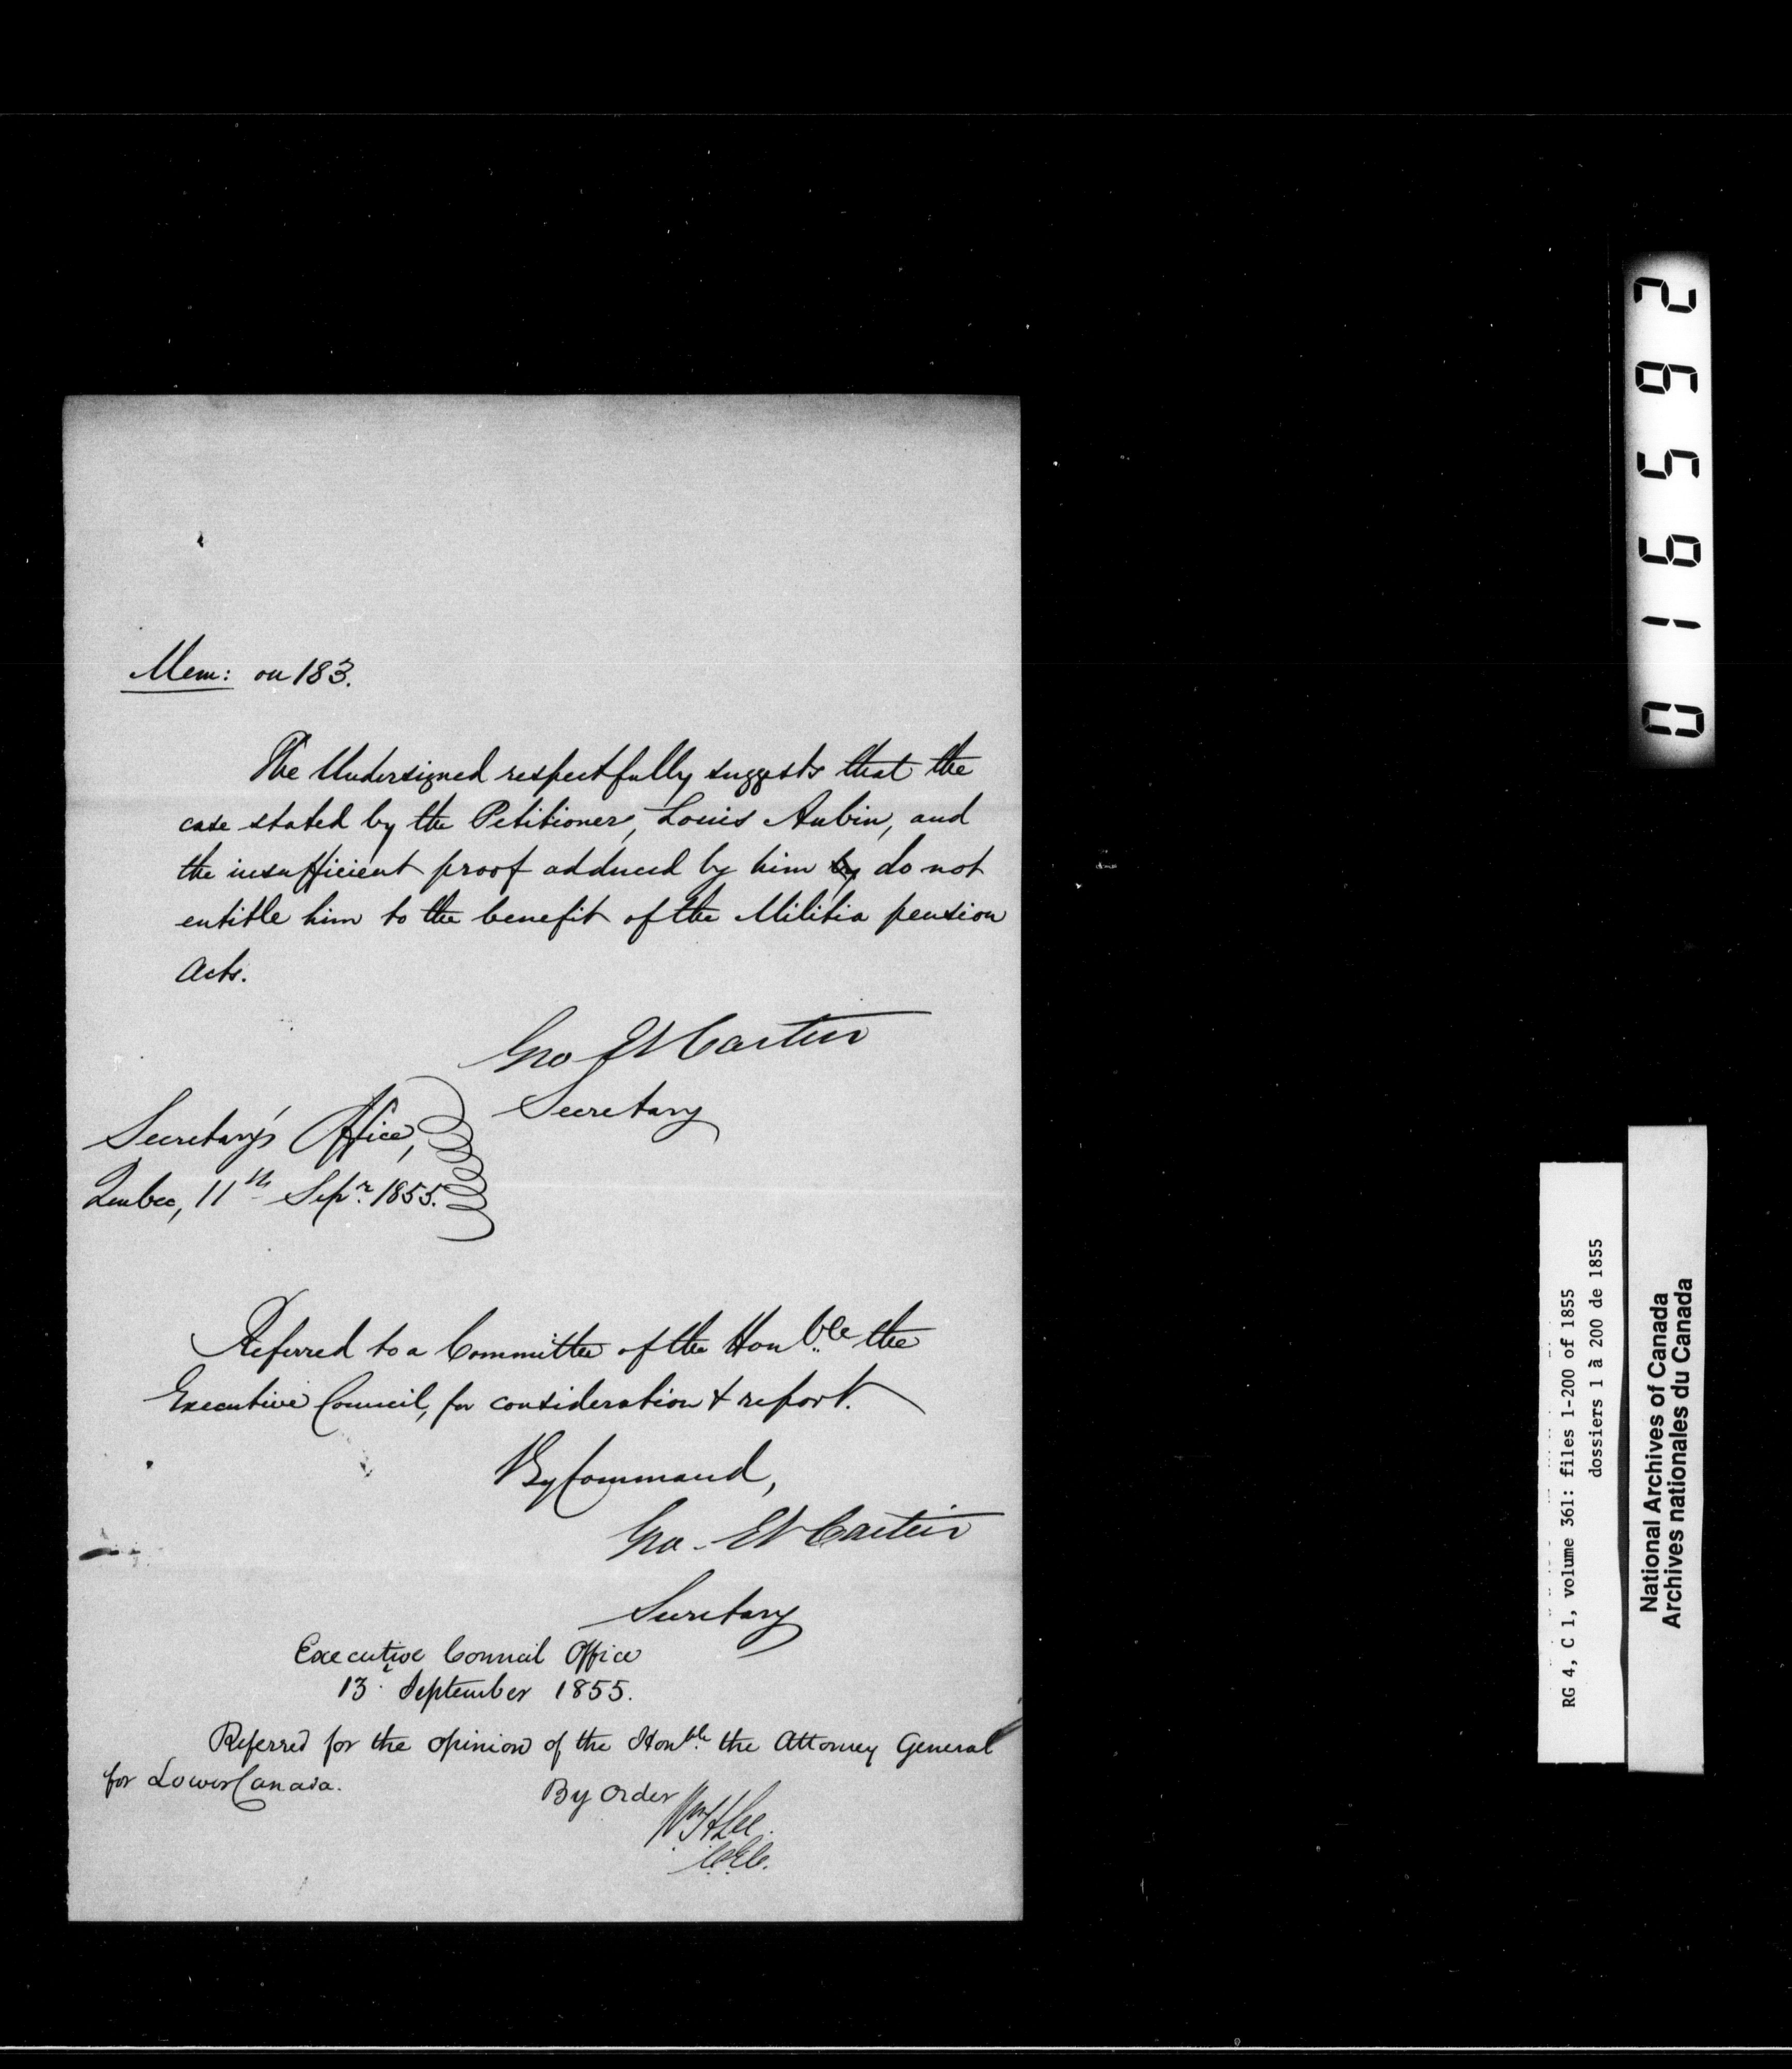 Mem: on 183.
The Undersigned respectfully suggests that the
case stated by the Petitioner, Louis Aubin, and
the insufficient proof adduced by him by do not
entitle him to the benefit of the Militia pension
Acts.
Geo Et Cartier
Secretary
Secretary's Office,
Quebec, 11th Sepr. 1855.
Referred to a Committee of the Honble the
Executive Council, for consideration & report.
By Command,
Geo. Et Cartier
Secretary
Executive Council Office
13 September 1855.
Referred for the opinion of the Honble the Attorney General
for Lower Canada.
By Order
Wm H Lee
C.E.C.
019592
RG 4, C 1, volume 361: files 1-200 of 1855
dossiers 1 à 200 de 1855
National Archives of Canada
Archives nationales du Canada